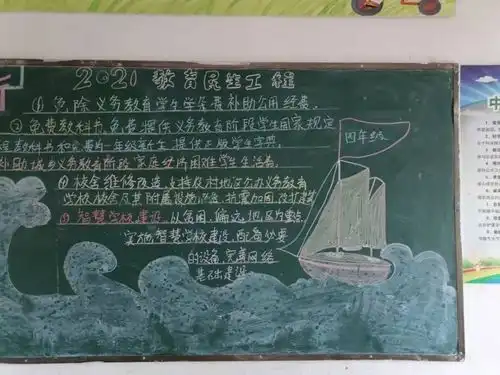 2021教育民生工程
①免除义务教育学生学杂费、补助公用经费。
②免费教科书,免费提供义务教育阶段学生国家规定
教科书和免费为一年级新生提供正版学生字典。
补助城乡义务教育阶段家庭经济困难学生生活费。
④校舍维修改造,支持农村地区公办义务教育
学校校舍及其附属设施
抗震加固、改扩建等
⑤智慧学校建设,从贫困、偏远地区为重点,
实施智慧学校建设,配备必要
的设备,完善网络
基础建设
四年级